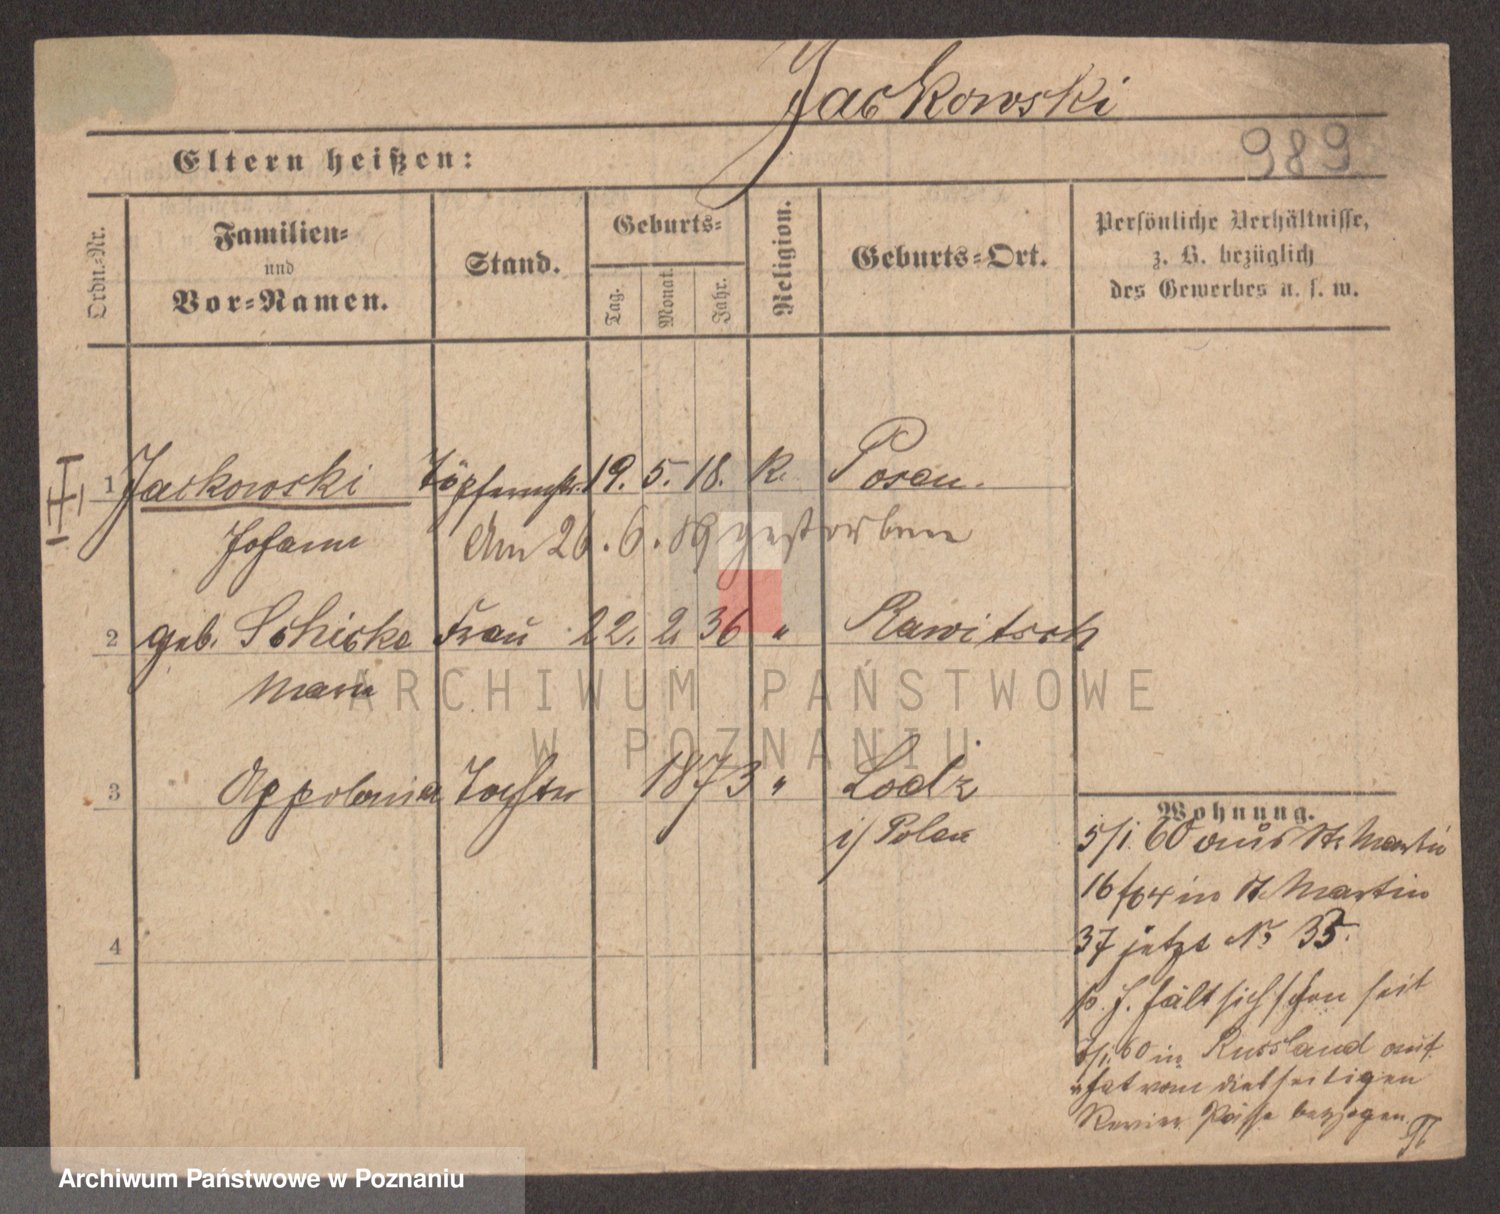 Jackowski
989
Eltern heißen:
Ordn.-Nr.
Familien-
und
Vor-Namen.
Stand.
Geburts-
Tag.
Monat.
Jahr.
Religion.
Geburts-Ort.
Persönliche Verhältnisse,
z. B. bezüglich
des Gewerbes u. s. w.
1 Jackowski Töpfermstr. 19. 5. 18. K. Posen.
Johann Am 26.6.89 gestorben
2 geb. Schicke Frau 22. 2. 36 " Rawitsch
Marie
ARCHIWUM PAŃSTWOWE
W POZNANIU
3 Appolonia Tochter 1873 " Lodz
i/ Polen
4
Wohnung.
5/1. 60 aus St. Martin
16 /64 in St. Martin
37 jetzt No 35.
p. J. hält sich schon seit
/1. 60 in Russland auf
hat vom diesseitigen
Revier Pässe bezogen
Archiwum Państwowe w Poznaniu